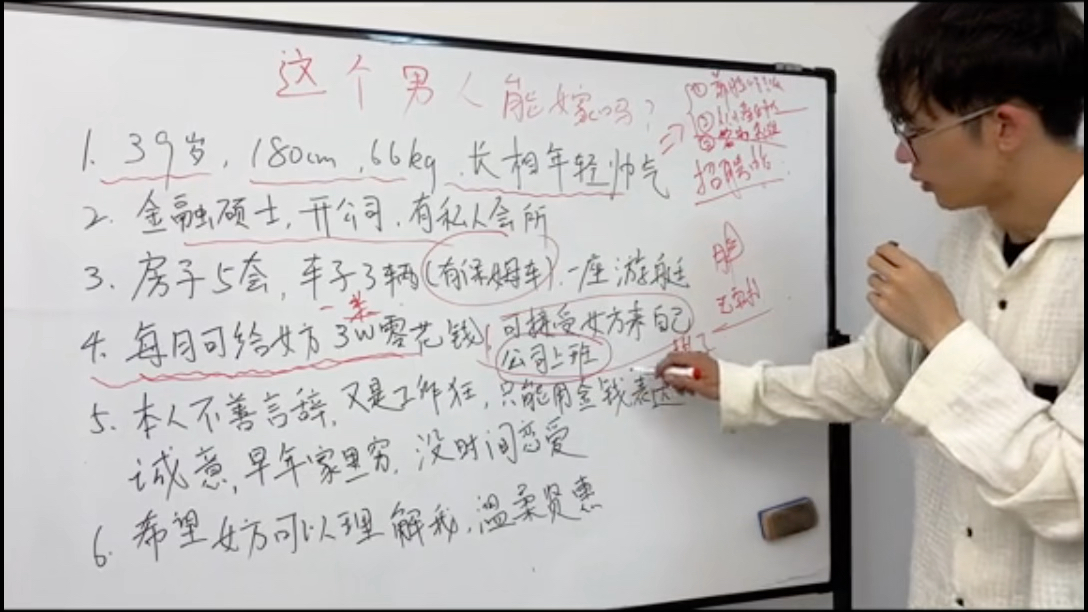 这个男人能嫁吗?
1. 39岁, 180cm, 66kg, 长相年轻帅气
2. 金融硕士, 开公司, 有私人会所
3. 房子5套, 车子3辆(有保姆车), 一座游艇
4. 每月可给女方3W零花钱(可接受女方来自己
公司上班
5. 本人不善言辞, 又是工作狂, 只能用金钱表达
诚意, 早年家里穷, 没时间恋爱
6. 希望女方可以理解我, 温柔贤惠
①
②
③
招聘